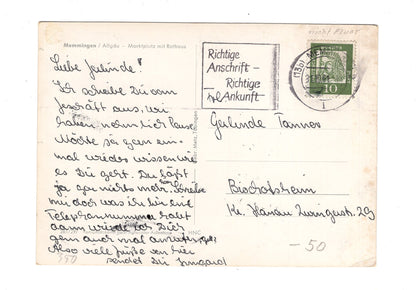 nicht Fluor
Memmingen / Allgäu – Marktplatz mit Rathaus
Liebe Gerlinde!
Ich schreibe Dir vom
Geschäft aus, wir
haben nämlich Pause
Möchte so gern ein-
mal wieder wissen wie
es Dir geht. Du läßt
ja gar nichts mehr. Schreibe
mir doch was ich für eine
Telephonnummer habt
dann würde ich Dich
gern auch mal anrufen.
Also viel Grüße von hier
sendet Dir Irmgard
Richtige
Anschrift –
Richtige
Ankunft
(13b) MEMM
10
Gerlinde Tanner
Bischofsheim
Kr. Hanau Zwingustr. 29
350
-50